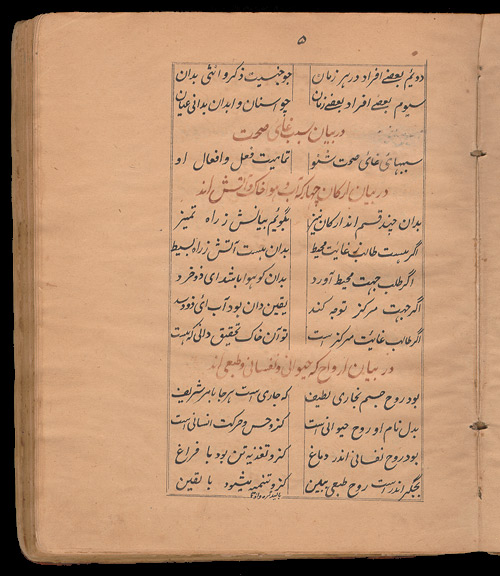 ۵
دویم بعضے افراد در هر زمان چو جنسیت ذکر و انثی بدان
سیوم بعضے افراد بعضے زمان چو اسنان و ابدان بدانی عیان
در بیان سبب غائ صحت
سببهای غائ صحت شنو تمامیت فعل و افعال او
در بیان ارکان چهار که آب و هوا خاک و آتش اند
بدان چند قسم اند ارکان نیز بگویم بیانش ز راه تمیز
اگر هست طالب بغایت محیط بدان هست آتش ز راه بسیط
اگر طلب جهت محیط آورد بدان کو هوا باشد ای ذو خرد
اگر جهت مرکز توجه کند یقین دان بود آب ای ذو رسد
اگر طالب غایت مرکز ست تو آن خاک تحقیق دانی که هست
در بیان ارواح که حیوانی و نفسانی و طبعی اند
بود روح جسم بخاری لطیف که جاری است هر جا بامر شریف
بدل نام او روح حیوانی است کزو حس و حرکت انسانی است
بود روح نفسانی اندر دماغ کزو تغذیه تن بود با فراغ
بجگر اندر است روح طبعی ببین کزو تنمیه میشود با یقین